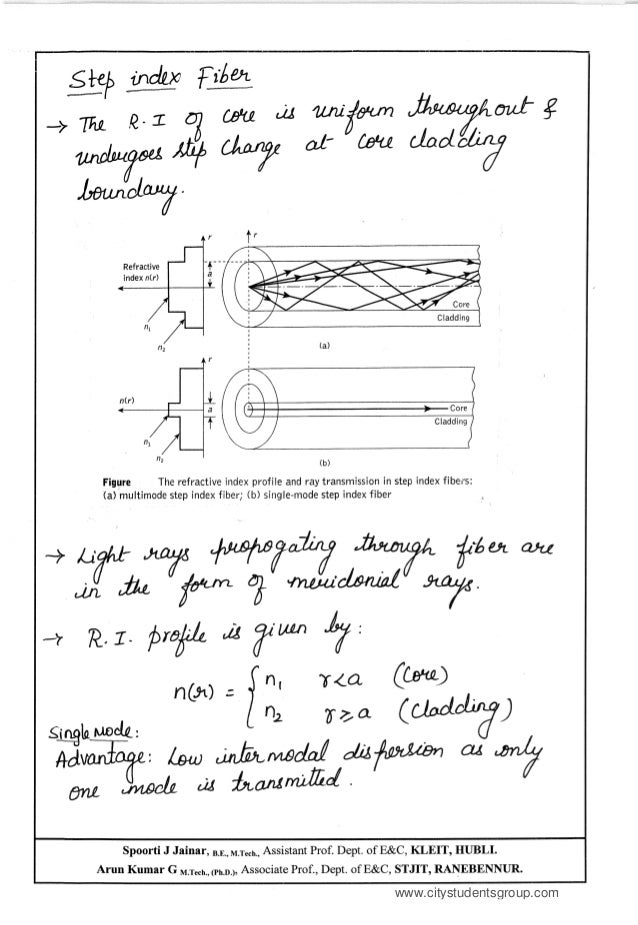 Step index Fiber
→ The R.I of core is uniform throughout &
undergoes step change at core cladding
boundary.
r
r
Refractive
index n(r)
a
n₁
n₂
Core
Cladding
(a)
r
n(r)
a
n₁
n₂
Core
Cladding
(b)
Figure The refractive index profile and ray transmission in step index fibers:
(a) multimode step index fiber; (b) single-mode step index fiber
→ Light rays propogating through fiber are
in the form of meridonial rays.
→ R.I. profile is given by:
n(r) = { n₁ r<a (Core)
n₂ r≥a (Cladding)
Single Mode:
Advantage: Low intermodal dispersion as only
one mode is transmitted.
Spoorti J Jainar, B.E., M.Tech., Assistant Prof. Dept. of E&C, KLEIT, HUBLI.
Arun Kumar G M.Tech., (Ph.D.), Associate Prof., Dept. of E&C, STJIT, RANEBENNUR.
www.citystudentsgroup.com